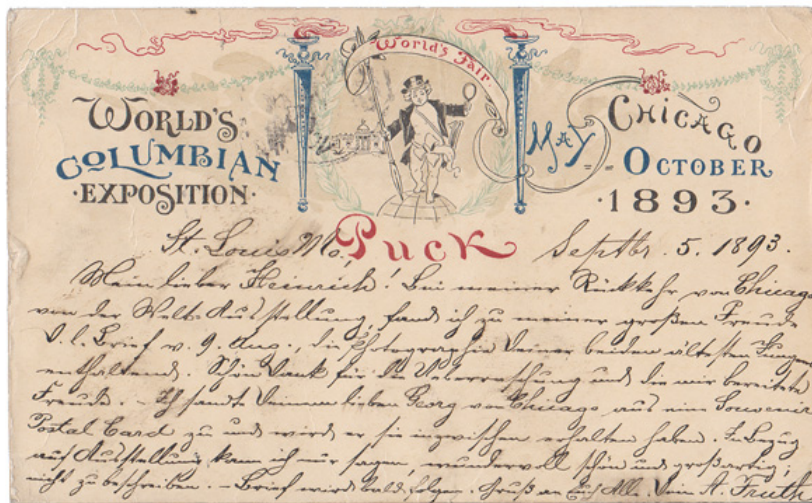 World's Fair.
WORLD'S
COLUMBIAN
·EXPOSITION·
MAY
CHICAGO
OCTOBER
·1893·
Puck
St. Louis Mo. Septbr. 5. 1893.
Mein lieber Heinrich! Bei meiner Rückkehr von Chicago
von der Welt-Ausstellung, fand ich zu meiner großen Freude
D. l. Brief v. 9. Aug., die Photographie Deiner beiden ältesten Jungen
enthaltend. Schön Dank für die Ueberraschung und die mir bereitete
Freude. – Ich sandte Deinem lieben Georg von Chicago aus eine Souvenir
Postal Card zu und wird er sie inzwischen erhalten haben. In Bezug
auf Ausstellung kann ich nur sagen, wundervoll schön und großartig,
nicht zu beschreiben. – Brief wird bald folgen. Gruß an Alle. Dein A.